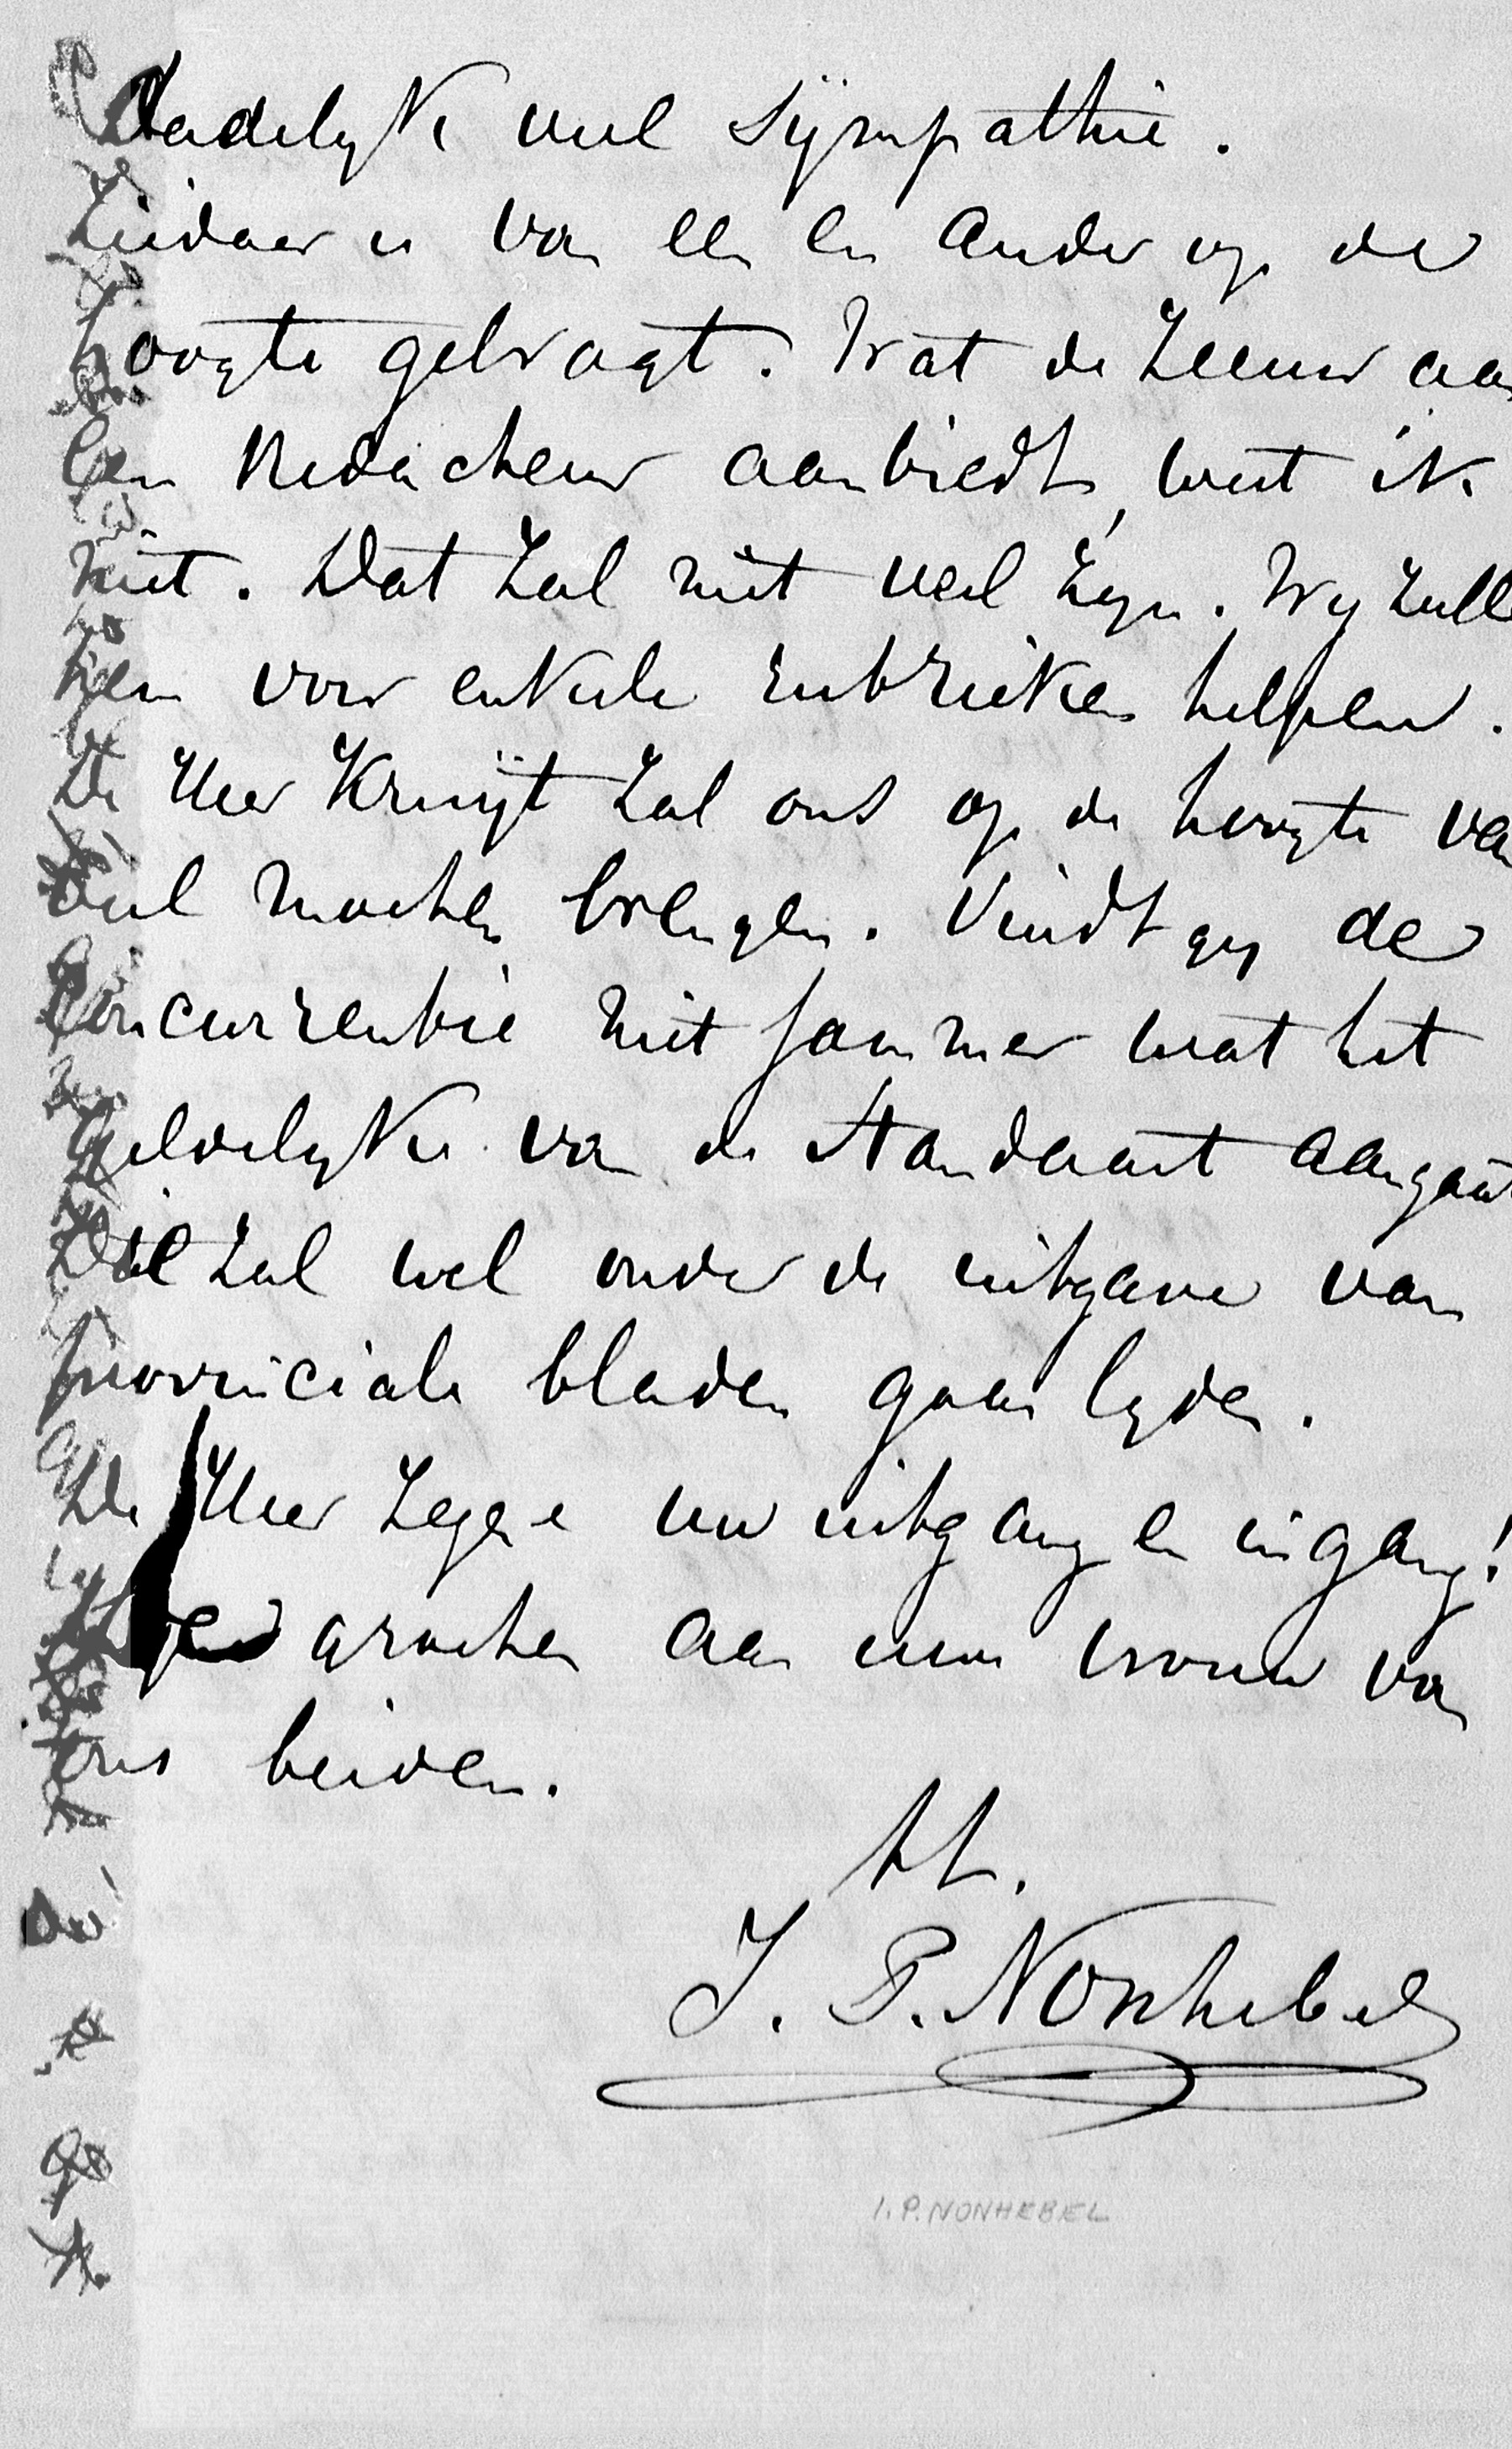 Dadelyk veel sÿmpathie.
Ziedaar u van een en ander op de
hoogte gebragt. Wat de Zeeuw aan
een Redacteur aanbiedt, weet ik
niet. Dat zal niet veel zyn. Wy zulle
hem voor enkele rubrieken helpen.
De Heer Kruÿt zal ons op de hoogte van
veel moeten brengen. Vindt gy de
Concurrentie niet jammer wat het
geldelyke van de Standaart aangaat
Die zal wel onder de uitgave van
provinciale bladen gaan lyden.
De Heer zegene uw uitgang en ingang!
groeten aan uwe vrouw van
ons beiden.
tt.
J. P. Nonhebel
I. P. NONHEBEL